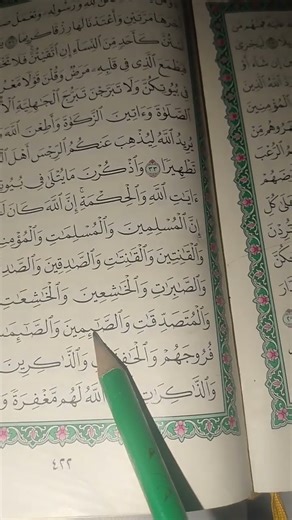 عَلَيْهِ فَمِنْهُم مَّن
لِّيَجْزِيَ
إِن شَآءَ أَوْ
ٱللَّهُ ٱلَّذِينَ
ٱلْمُؤْمِنِينَ
ظَٰهَرُوهُم مِّنْ
ٱلرُّعْبَ
تُرِدْنَ
لِلَّهِ وَرَسُولِهِۦ وَتَعْمَلْ
أَجْرَهَا مَرَّتَيْنِ وَأَعْتَدْنَا لَهَا رِزْقًا كَرِيمًا
لَسْتُنَّ كَأَحَدٍ مِّنَ ٱلنِّسَآءِ إِنِ ٱتَّقَيْتُنَّ فَلَا
فَيَطْمَعَ ٱلَّذِي فِي قَلْبِهِۦ مَرَضٌ وَقُلْنَ قَوْلًا مَّعْرُوفًا
فِي بُيُوتِكُنَّ وَلَا تَبَرَّجْنَ تَبَرُّجَ ٱلْجَٰهِلِيَّةِ
ٱلصَّلَوٰةَ وَءَاتِينَ ٱلزَّكَوٰةَ وَأَطِعْنَ ٱللَّهَ
يُرِيدُ ٱللَّهُ لِيُذْهِبَ عَنكُمُ ٱلرِّجْسَ أَهْلَ
تَطْهِيرًا ٣٣ وَٱذْكُرْنَ مَا يُتْلَىٰ فِي
ءَايَٰتِ ٱللَّهِ وَٱلْحِكْمَةِ إِنَّ ٱللَّهَ كَانَ
إِنَّ ٱلْمُسْلِمِينَ وَٱلْمُسْلِمَٰتِ
وَٱلْقَٰنِتِينَ وَٱلْقَٰنِتَٰتِ وَٱلصَّٰدِقِينَ
وَٱلصَّٰبِرَٰتِ وَٱلْخَٰشِعِينَ وَٱلْخَٰشِعَٰتِ
وَٱلْمُتَصَدِّقَٰتِ وَٱلصَّٰٓئِمِينَ وَٱلصَّٰٓئِمَٰتِ
فُرُوجَهُمْ وَٱلذَّٰكِرِينَ
وَٱلذَّٰكِرَٰتِ ٱللَّهُ لَهُم مَّغْفِرَةً
٤٢٢